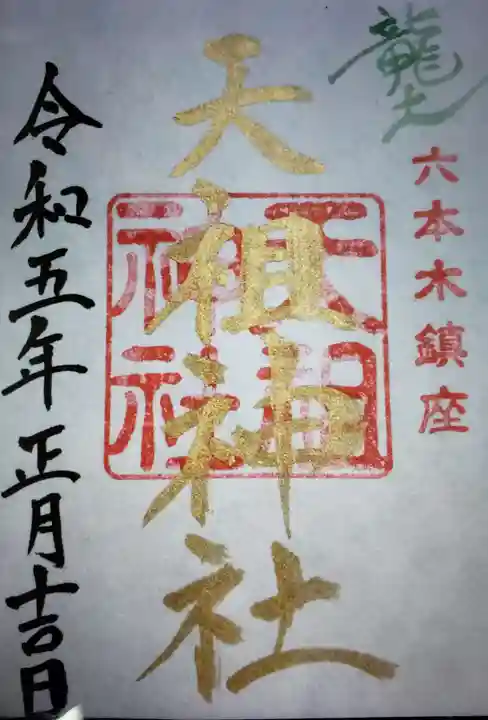 龍土
六本木鎮座
天祖神社
天祖神社
令和五年正月吉日